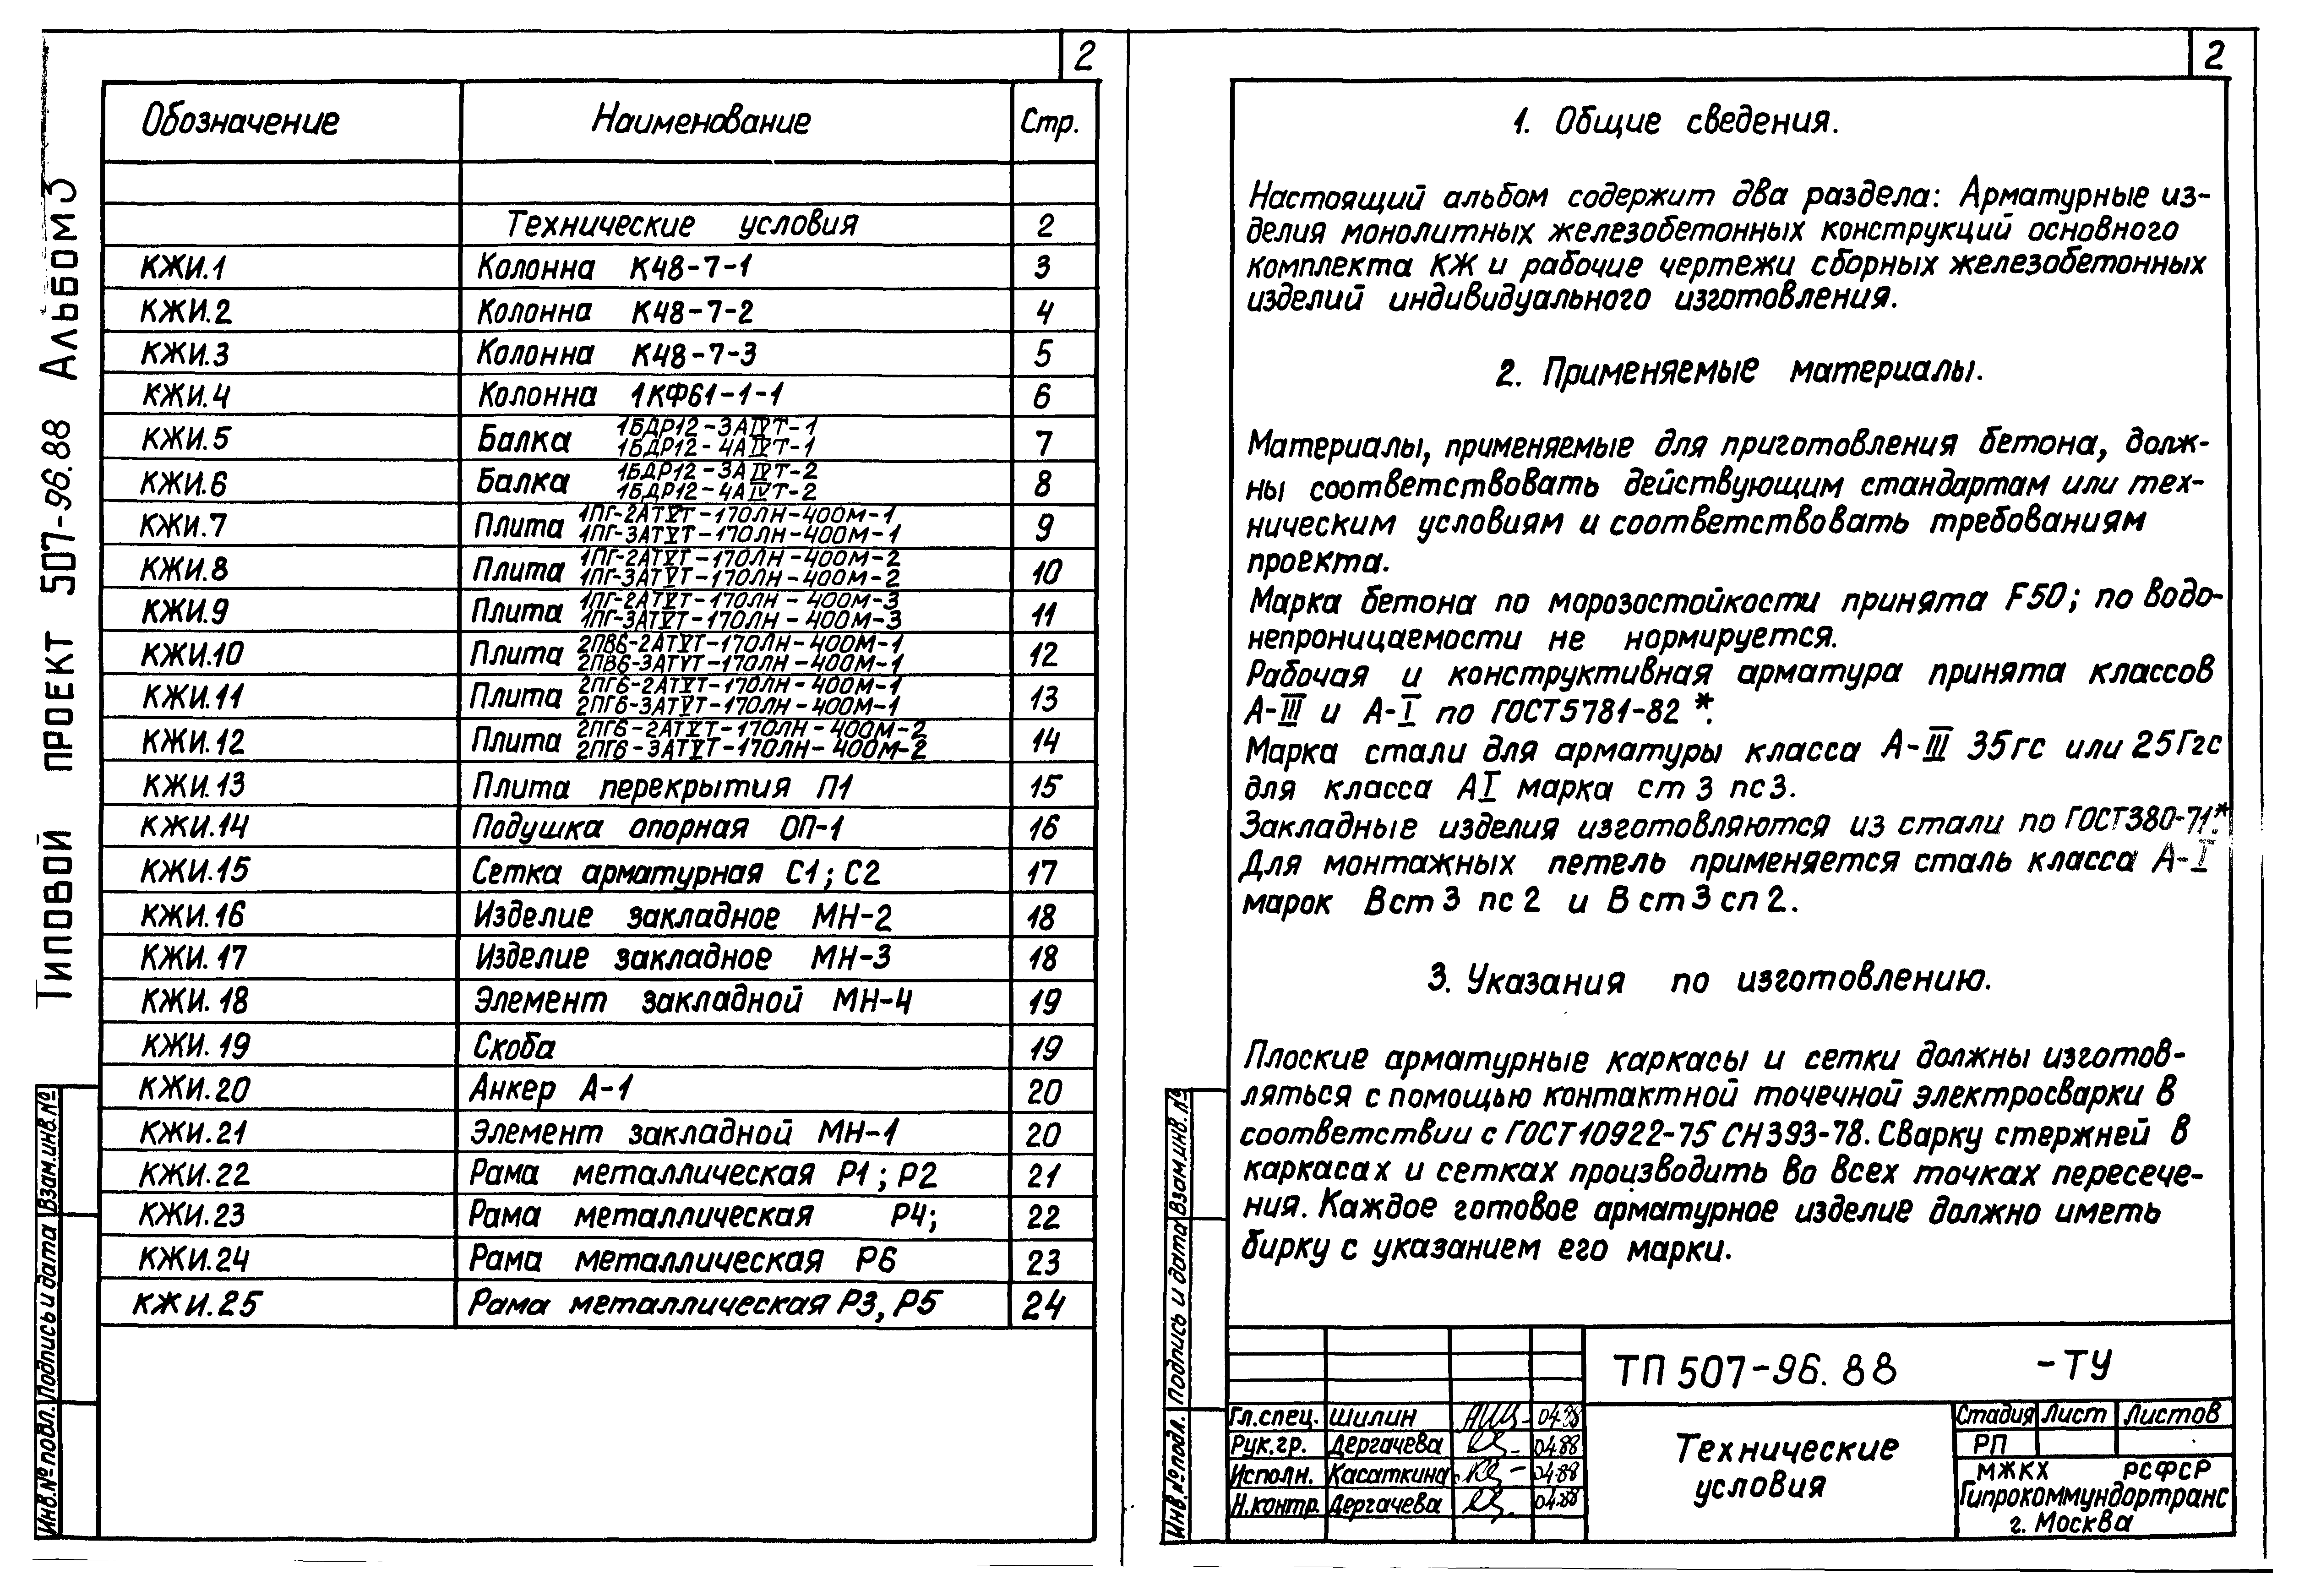 Типовой проект 507-96.88 Альбом 3
2
Обозначение Наименование Стр.
Технические условия 2
КЖИ.1 Колонна К48-7-1 3
КЖИ.2 Колонна К48-7-2 4
КЖИ.3 Колонна К48-7-3 5
КЖИ.4 Колонна 1КФ61-1-1 6
КЖИ.5 Балка 1БДР12-3АIVТ-1 7
1БДР12-4АIVТ-1
КЖИ.6 Балка 1БДР12-3АIVТ-2 8
1БДР12-4АIVТ-2
КЖИ.7 Плита 1ПГ-2АТVТ-170ЛН-400М-1 9
1ПГ-3АТVТ-170ЛН-400М-1
КЖИ.8 Плита 1ПГ-2АТVТ-170ЛН-400М-2 10
1ПГ-3АТVТ-170ЛН-400М-2
КЖИ.9 Плита 1ПГ-2АТVТ-170ЛН-400М-3 11
1ПГ-3АТVТ-170ЛН-400М-3
КЖИ.10 Плита 2ПВ6-2АТVТ-170ЛН-400М-1 12
2ПВ6-3АТVТ-170ЛН-400М-1
КЖИ.11 Плита 2ПГ6-2АТVТ-170ЛН-400М-1 13
2ПГ6-3АТVТ-170ЛН-400М-1
КЖИ.12 Плита 2ПГ6-2АТVТ-170ЛН-400М-2 14
2ПГ6-3АТVТ-170ЛН-400М-2
КЖИ.13 Плита перекрытия П1 15
КЖИ.14 Подушка опорная ОП-1 16
КЖИ.15 Сетка арматурная С1; С2 17
КЖИ.16 Изделие закладное МН-2 18
КЖИ.17 Изделие закладное МН-3 18
КЖИ.18 Элемент закладной МН-4 19
КЖИ.19 Скоба 19
КЖИ.20 Анкер А-1 20
КЖИ.21 Элемент закладной МН-1 20
КЖИ.22 Рама металлическая Р1; Р2 21
КЖИ.23 Рама металлическая Р4; 22
КЖИ.24 Рама металлическая Р6 23
КЖИ.25 Рама металлическая Р3, Р5 24
Инв.№ подл. Подпись и дата Взам.инв.№
2
1. Общие сведения.
Настоящий альбом содержит два раздела: Арматурные из-
делия монолитных железобетонных конструкций основного
комплекта КЖ и рабочие чертежи сборных железобетонных
изделий индивидуального изготовления.
2. Применяемые материалы.
Материалы, применяемые для приготовления бетона, долж-
ны соответствовать действующим стандартам или тех-
ническим условиям и соответствовать требованиям
проекта.
Марка бетона по морозостойкости принята F50; по водо-
непроницаемости не нормируется.
Рабочая и конструктивная арматура принята классов
А-III и А-I по ГОСТ5781-82*.
Марка стали для арматуры класса А-III 35гс или 25Г2с
для класса АI марка ст 3 пс3.
Закладные изделия изготовляются из стали по ГОСТ380-71*.
Для монтажных петель применяется сталь класса А-I
марок Вст3 пс2 и Вст3сп2.
3. Указания по изготовлению.
Плоские арматурные каркасы и сетки должны изготов-
ляться с помощью контактной точечной электросварки в
соответствии с ГОСТ10922-75 СН393-78. Сварку стержней в
каркасах и сетках производить во всех точках пересече-
ния. Каждое готовое арматурное изделие должно иметь
бирку с указанием его марки.
Инв.№ подл. Подпись и дата Взам.инв.№
ТП 507-96.88 -ТУ
Гл.спец. Шилин 04.88
Рук.гр. Дергачева 04.88
Исполн. Касаткина 04.88
Н.контр. Дергачева 04.88
Технические
условия
Стадия Лист Листов
РП
МЖКХ РСФСР
Гипрокоммундортранс
г. Москва